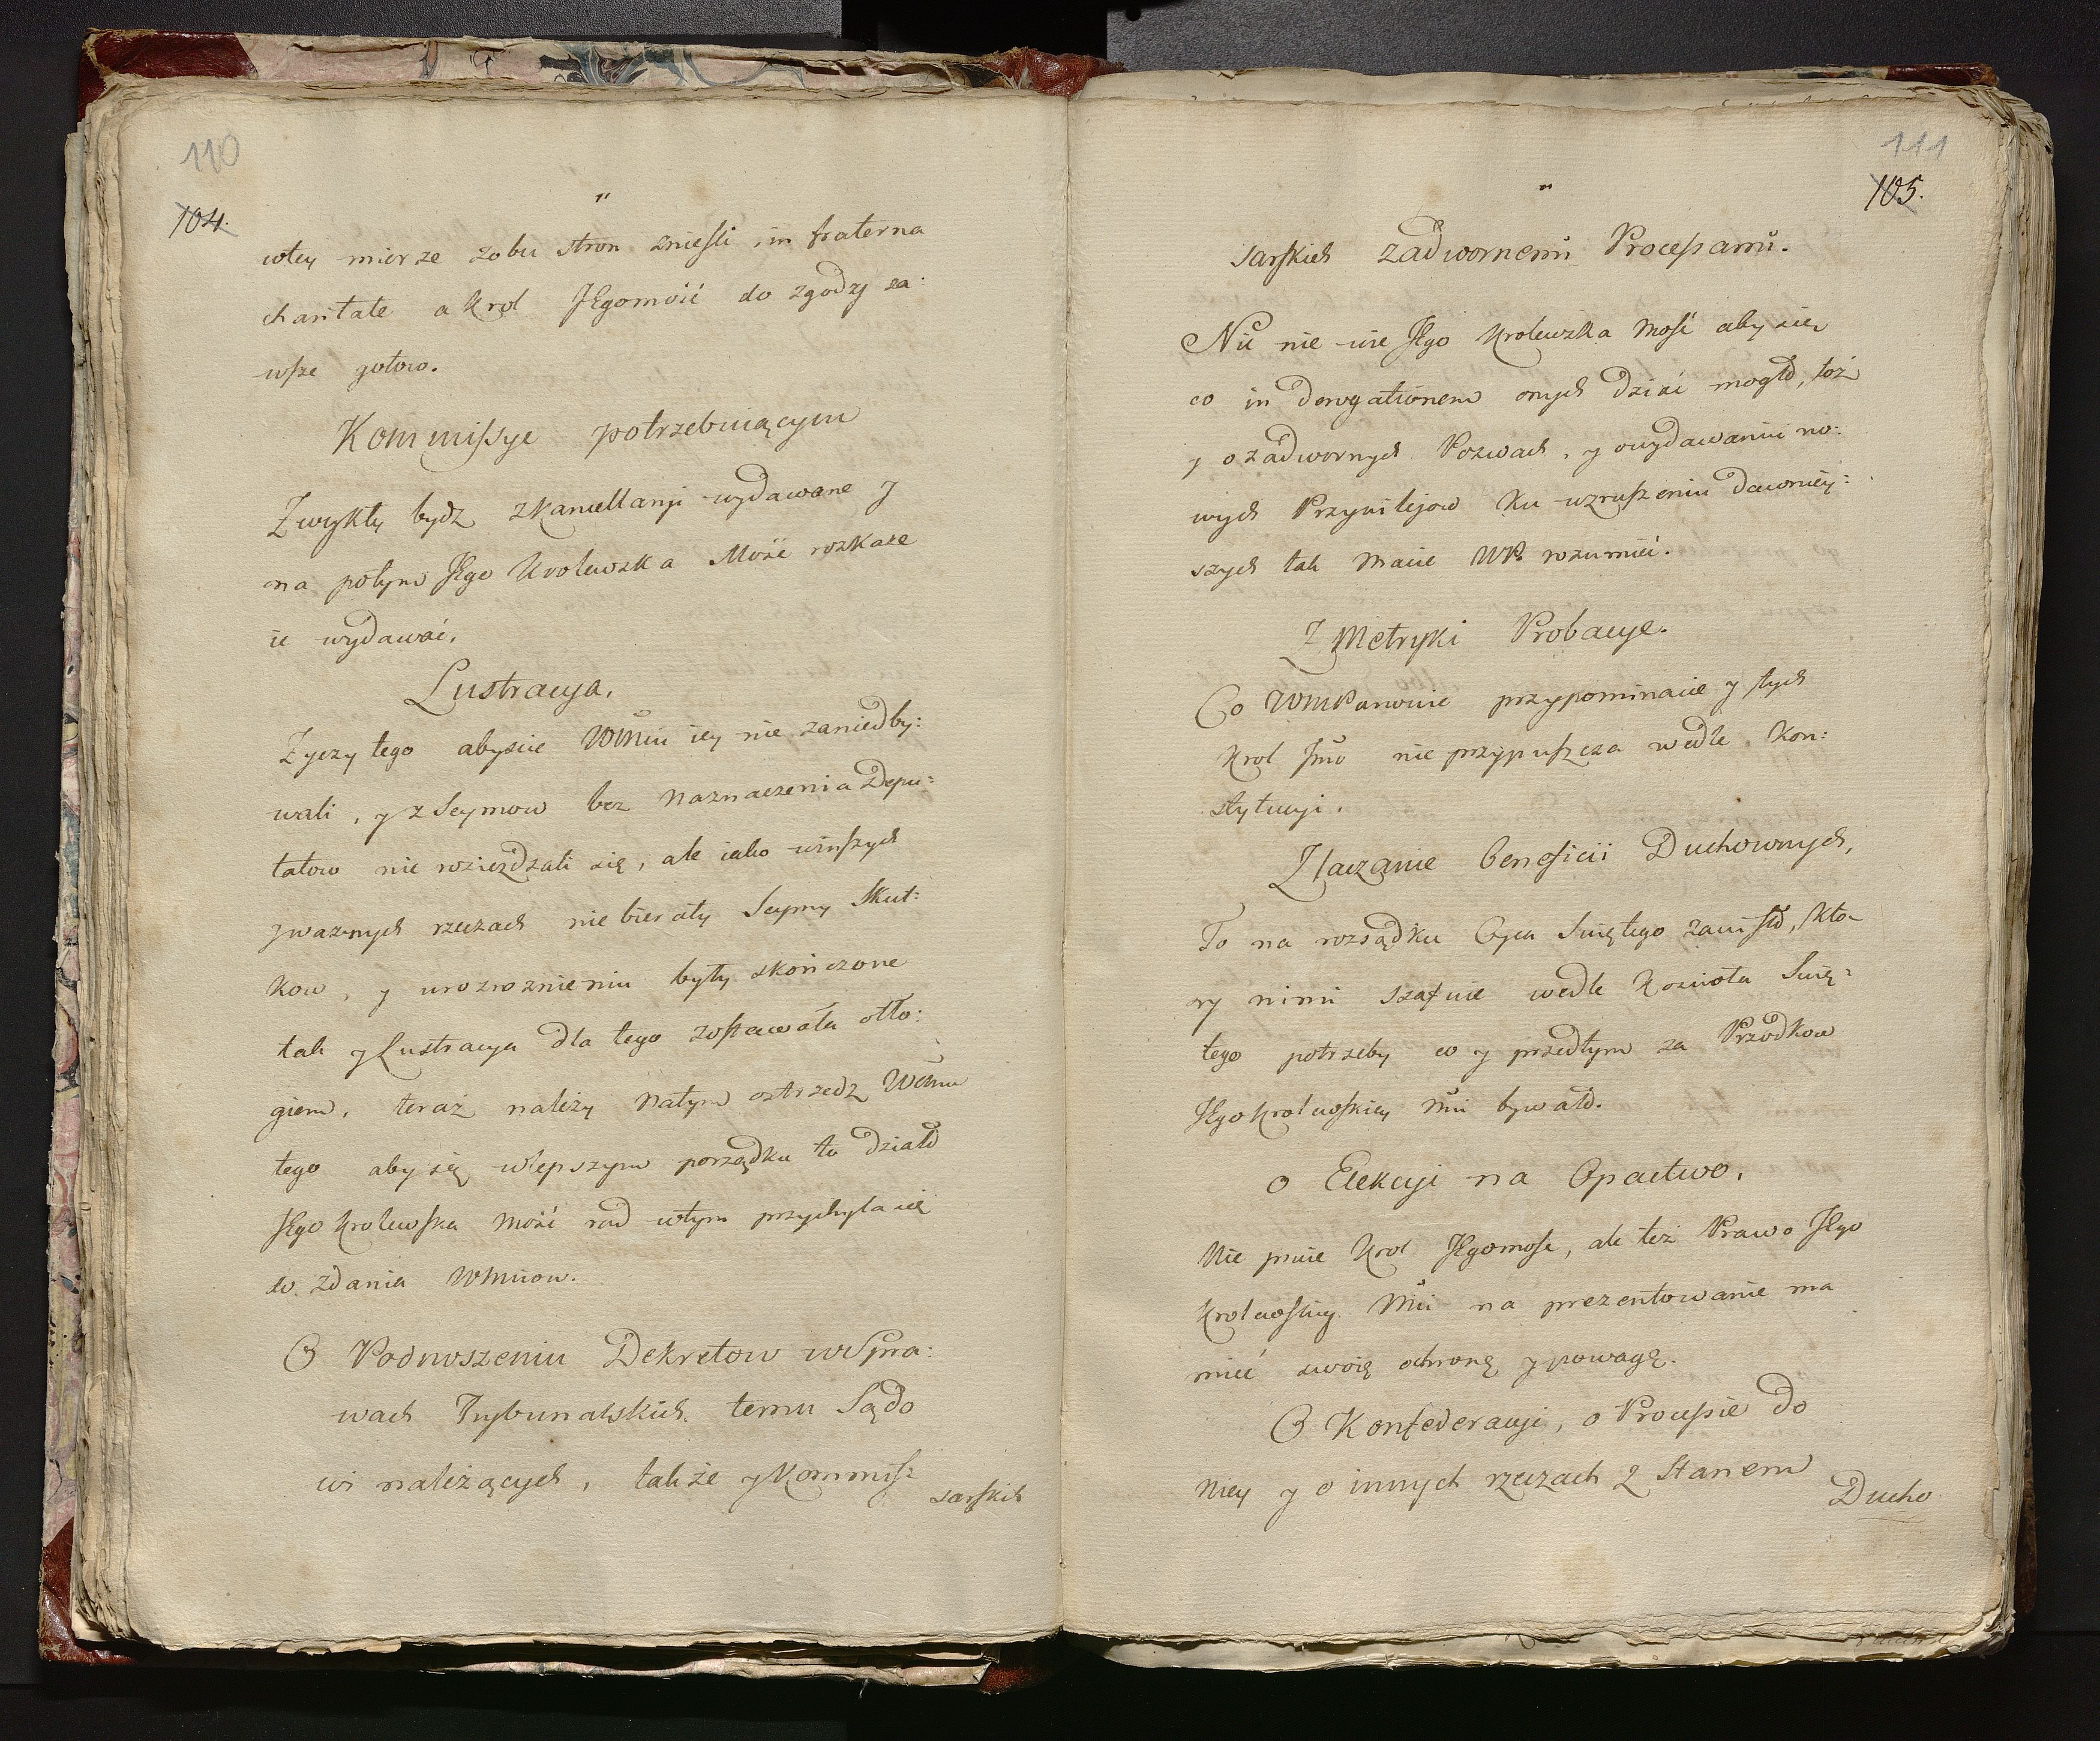 110
104.
wtey mierze zobu stron znieśli, in fraterna
charitate a Krol JEgomość do zgody za:
wsze gotow.
Kommissye potrzebuiącym
Zwykły bydz zKancellaryi wydawane y
na potym JEgo Krolewska Mość rozkaże
ie wydawać.
Lustracya.
Zyczy tego abyście WMść iey nie zaniedby:
wali, y z Seymow bez naznaczenia Depu:
tatow nie roziezdzali się, ale iako winszych
y ważnych rzeczach nie bierały Seymy Skut:
kow, y urozroznieniu były skończone
tak y Lustracya dla tego zostawała odło:
giem, teraz należy natym ostrzedz
tego aby się wlepszym porządku to działo
JEgo Krolewska Mość rad wtym przychyla się
do zdania WMciow.
O Podnoszeniu Dekretow wSpra:
wach Trybunalskich temu Sądo
wi należących, także y Kommiss:
sarskich
111
105.
sarskich Zadwornemi Processami.
Nic nie wie JEgo Krolewska Mość aby się
co in derogationem onych dziać mogło, toż
y o zadwornych Pozwach, y owydawaniu no:
wych Przywilejow ku wzruszeniu dawniey:
szych tak macie WP. rozumieć.
Z Metryki Probacye.
Co WMPanowie przypominacie y tych
Krol Jmć nie przypuszcza wedle Kon:
stytucyi.
Złączanie beneficii Duchownych,
To na rozsądku Oyca Swiętego zawisło, kto-
ry nimi szafuie wedle Kościoła Swię:
tego potrzeby co y przedtym za Przodkow
JEgo Krolewskiey Mci bywało.
o Elekcyi na Opactwo.
Nie psuie Krol JEgomość, ale też Prawo JEgo
Krolewskiey Mci na prezentowanie ma
mieć swoię ochronę y powagę.
O Konfederacyi, o Processie do
niey y o innych rzeczach z Stanem
Ducho